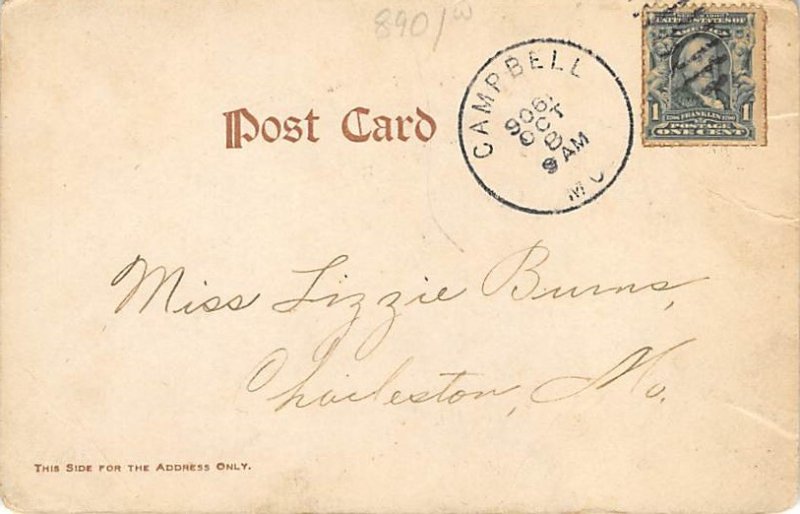 8901
Post Card
CAMPBELL
1906
OCT
8
AM
MO
UNITED STATES OF
AMERICA
1 1
FRANKLIN
POSTAGE
ONE CENT
Miss Lizzie Burns,
Charleston, Mo.
THIS SIDE FOR THE ADDRESS ONLY.